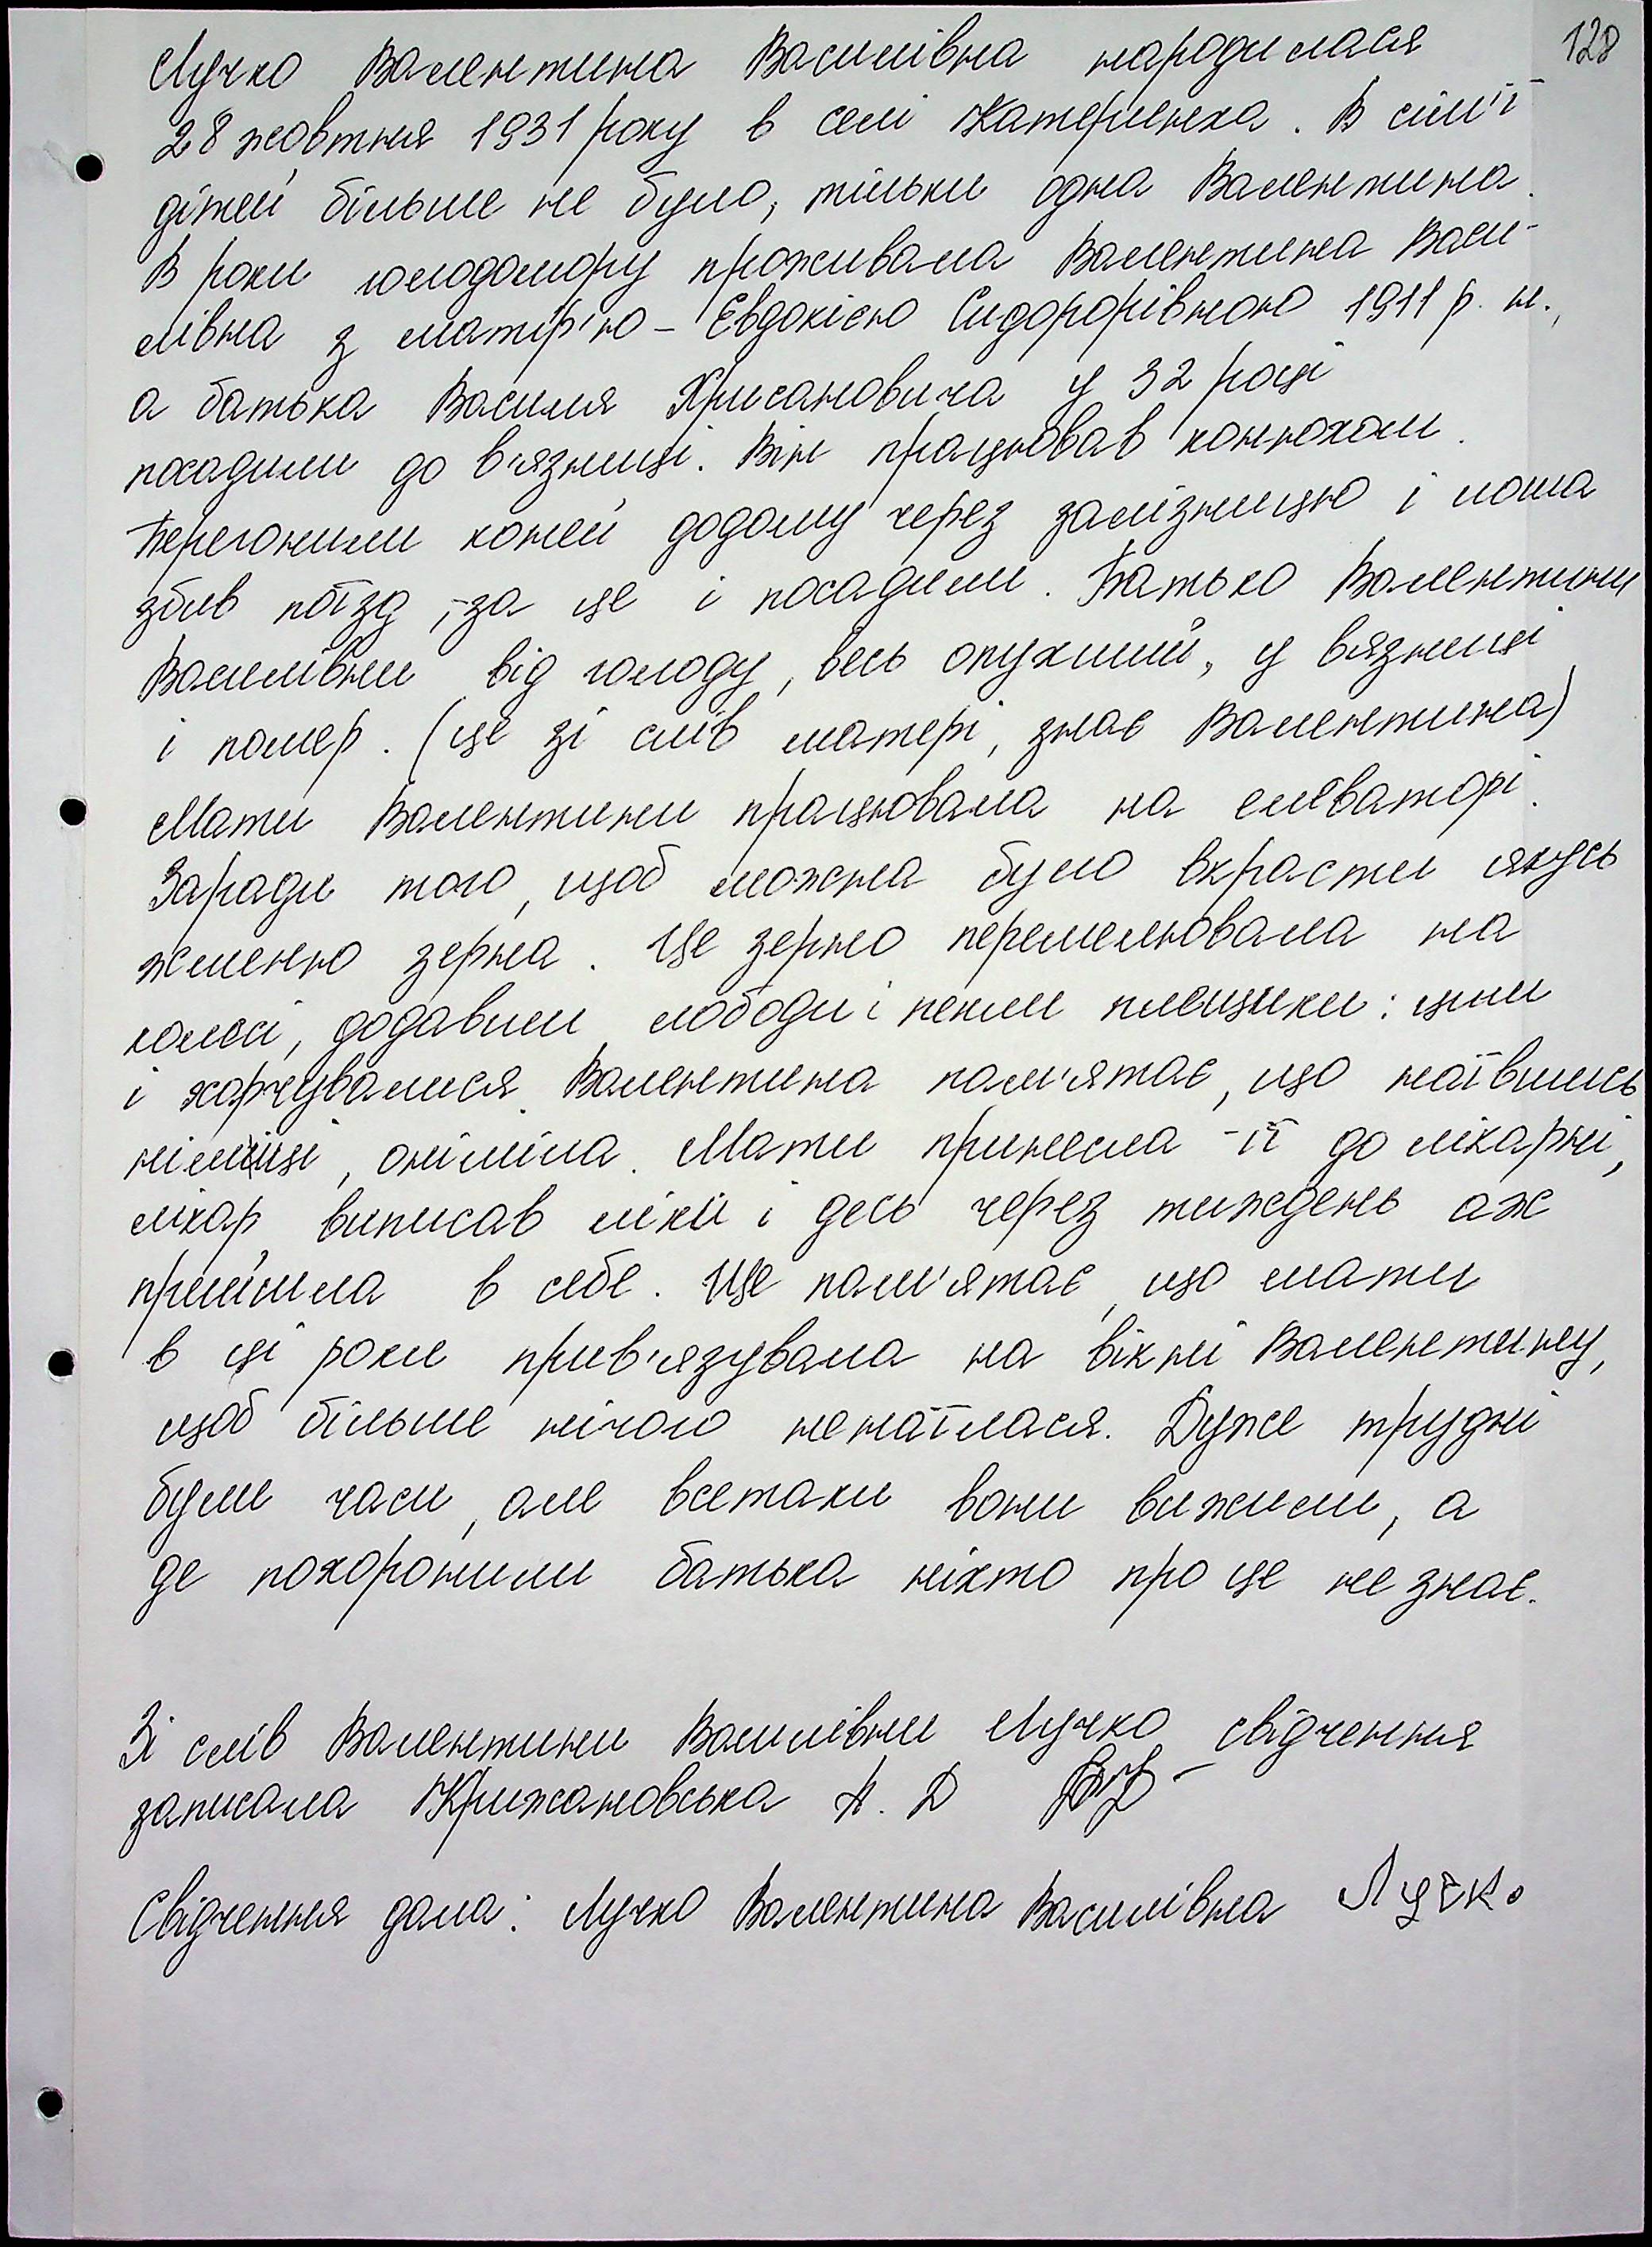 128
Лучко Валентина Василівна народилася
28 жовтня 1931 року в селі Катеринка. В сім'ї
дітей більше не було, тільки одна Валентина.
В роки голодомору проживала Валентина Васи-
лівна з матір'ю - Євдокією Сидорорівною 1911 р. н.,
а батька Василя Хрисановича у 32 році
посадили до в'язниці. Він працював конюхом.
Переганили коней додому через залізницю і лоша
збив поїзд, за це і посадили. Батько Валентини
Василівни від голоду, весь опухший, у вязниці
і помер. (це зі слів матері, знає Валентина)
Мати Валентини працювала на елеваторі.
Заради того, щоб можна було вкрасти якусь
жменю зерна. Це зерно перемелювала на
колесі, додавши лободи і пекли плещики: цим
і харчувалися. Валентина пам'ятає, що наївшись
німиці, оніміла. Мати принесла її до лікарні,
лікар виписав ліки і десь через тиждень аж
прийшла в себе. Ще пам'ятає, що мати
в ці роки прив'язувала на вікні Валентину,
щоб більше нічого ненаїлася. Дуже трудні
були часи, але всетаки вони вижили, а
де похоронили батька ніхто про це не знає.
Зі слів Валентини Василівни Лучко свідчення
записала Крижановська А. Д
Свідчення дала: Лучко Валентина Василівна Лучко